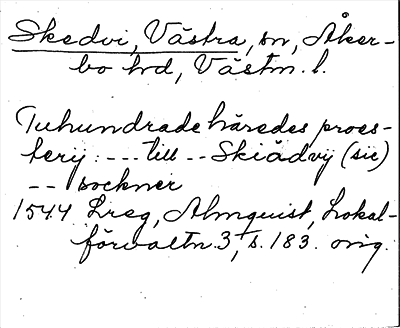 Skedvi, Västra, sn, Åker-
bo hd, Västm. l.
Tuhundrade häredes proes-
terij: --- till -- Skiädvij (sic)
-- sockner
1544 Lreg, Almquist, Lokal-
förvaltn. 3, s. 183. orig.